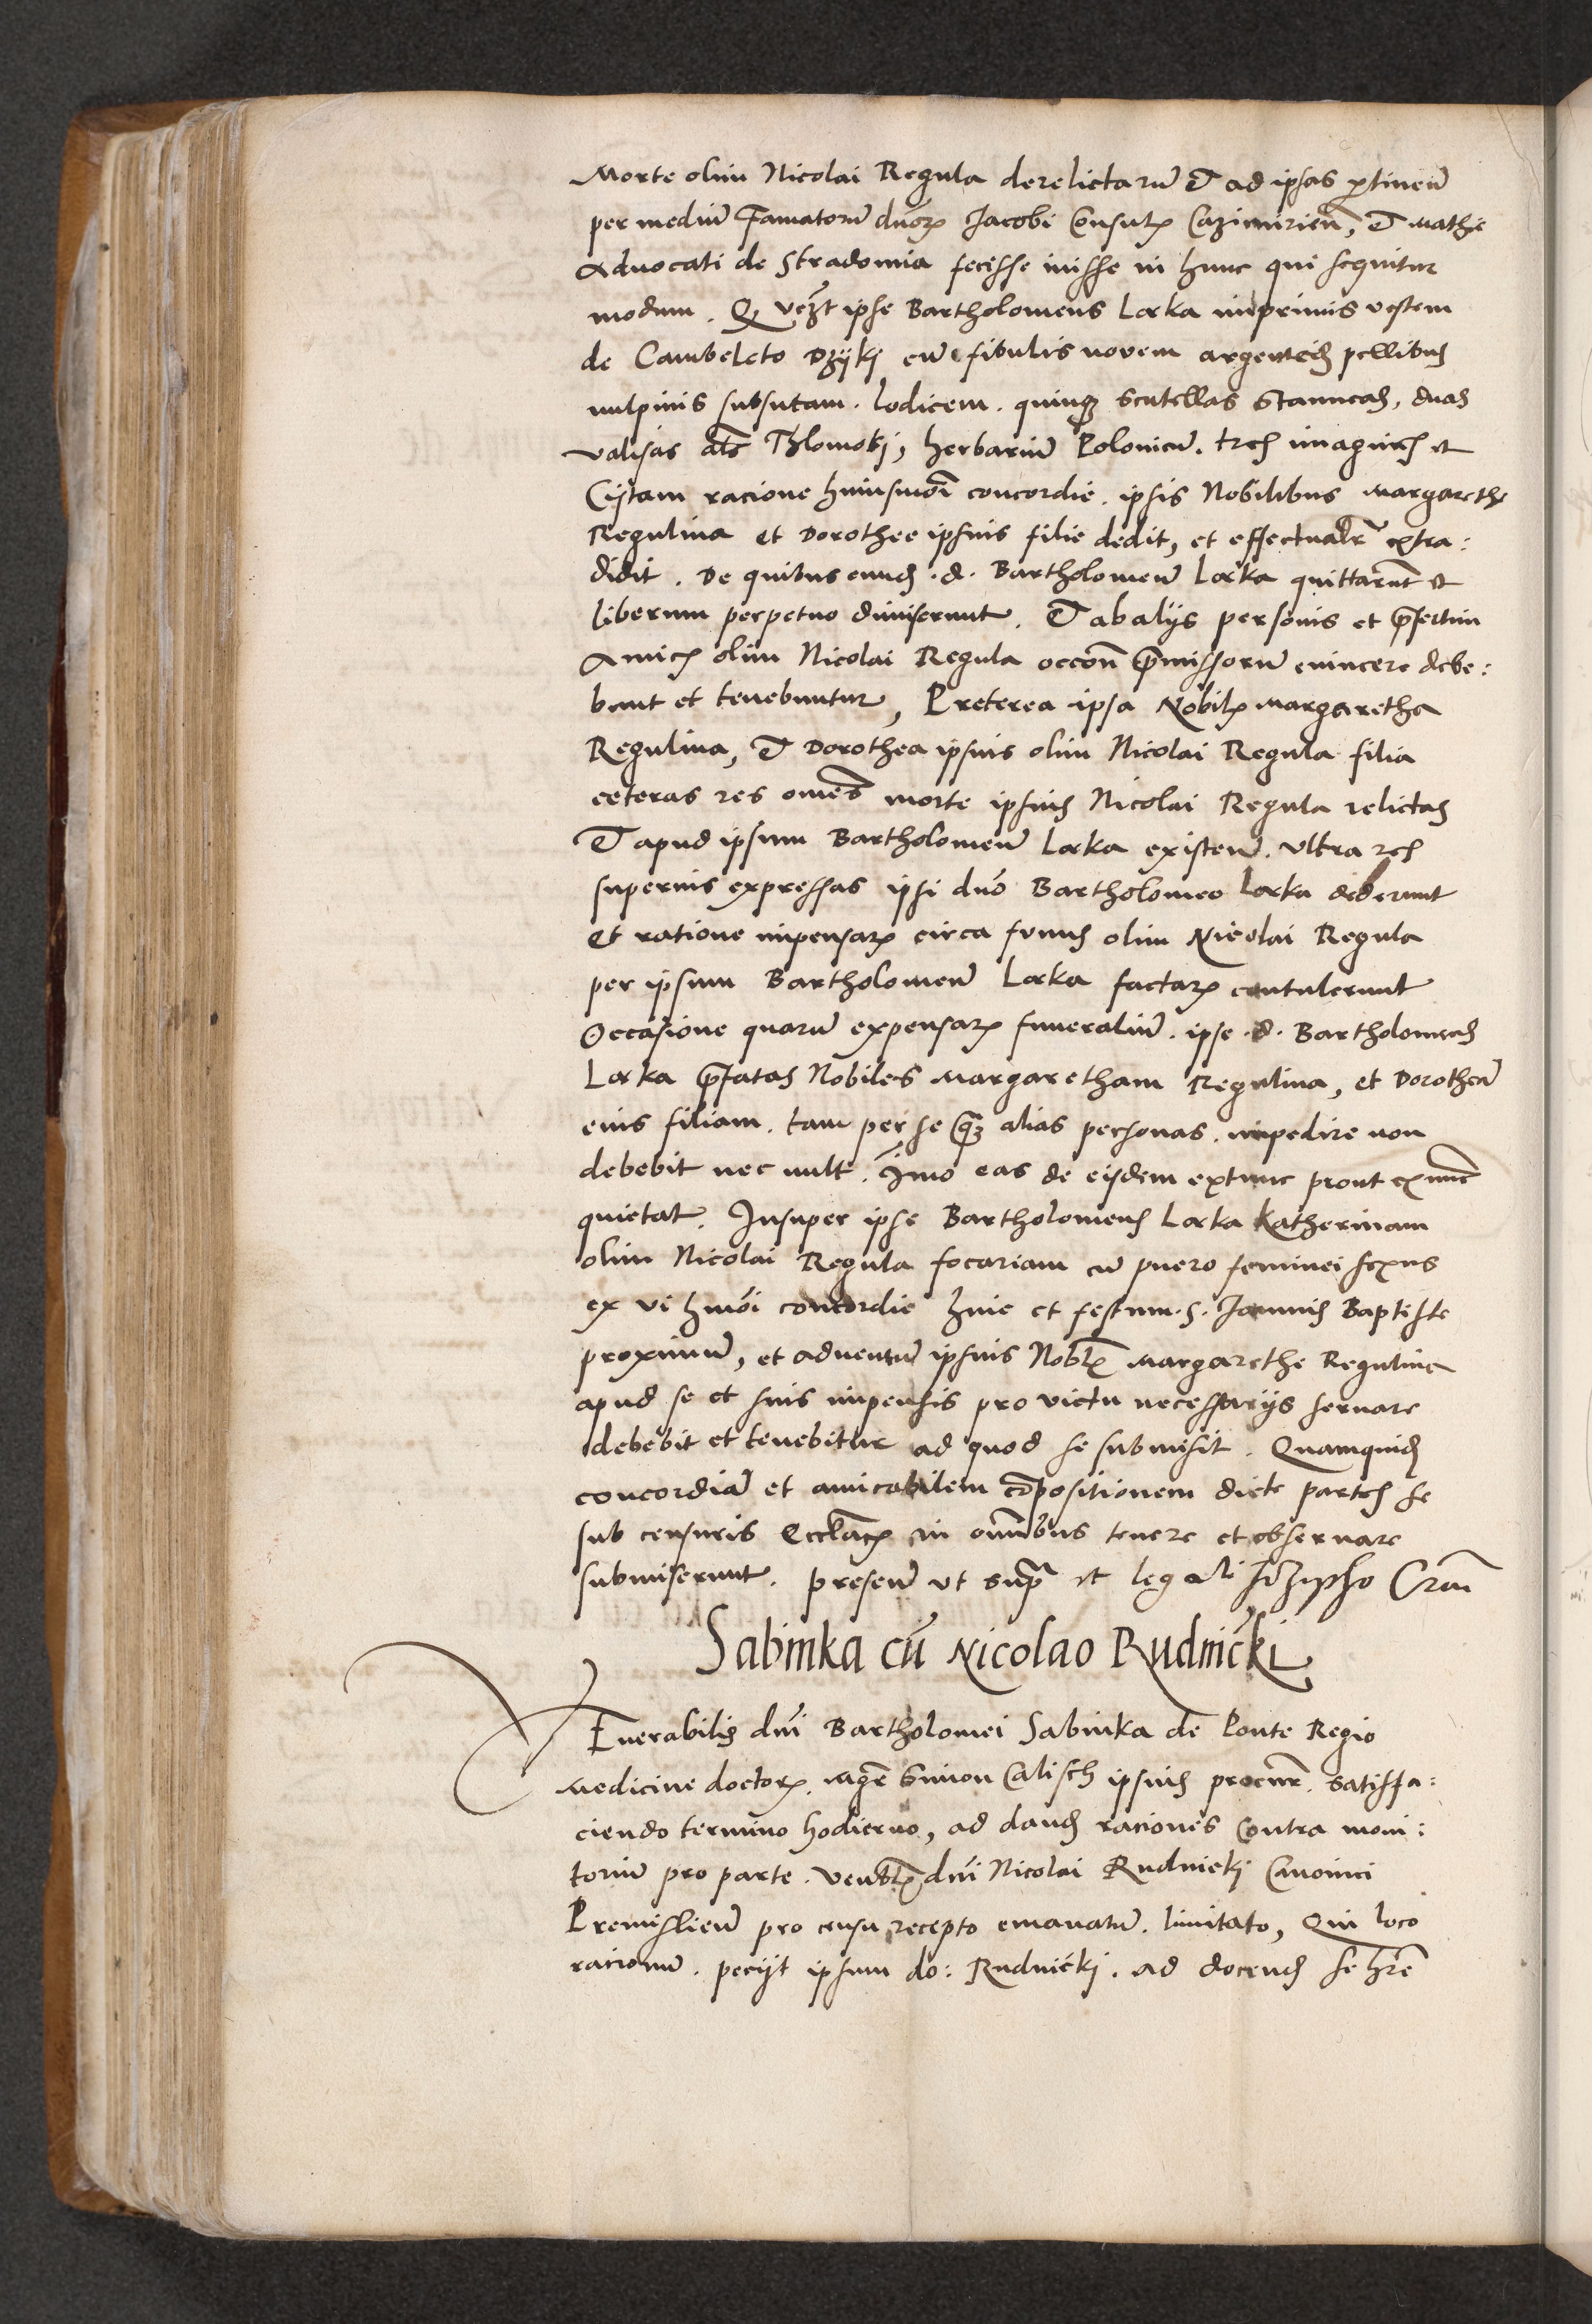 Morte olim Nicolai Regula derelictarū Et ad ipsas ꝑtineñ
per mediū Famatorū dnōrꝫ Jacobi Consulꝭ Cazimirieñ, Et Mathie
Advocati de Stradomia fecisse inisse in hunc qui sequitur
modum. Qꝫ vezt ipse Bartholomeus Lorka inprimis vestem
de Cambeleto Dzyki cū fibulis novem argenteis pellibus
vulpinis subsutam. lodicem. quinqꝫ scutellas Stanneas, duas
valisas als Thlomoki, herbariū Polonicū. tres imagines et
Cistam racione huiusmoī concordie. ipsis Nobilibus Margarethe
Regulina et Dorothee ipsius filie dedit, et effectualr̃ extra:
didit. De quibus eund. d. Bartholomeū Lorka quittarūt et
liberum perpetuo dimiserunt. Et ab alijs personis et p̃sertim
Amicꝭ olim Nicolai Regula occoñ p̃missorū evincere debe:
bunt et tenebuntur, Preterea ipsa Nobilꝭ Margaretha
Regulina, Et Dorothea ipsius olim Nicolai Regula filia
ceteras res omēs morte ipsius Nicolai Regula relictas
Et apud ipsum Bartholomeū Lorka existeñ. Ultra res
superius expressas ipsi dnō Bartholomeo Lorka dederunt
et ratione impensarꝫ circa funus olim Nicolai Regula
per ipsum Bartholomeū Lorka factarꝫ contulerunt
Occasione quarū expensarꝫ funeraliū. ipse .d. Bartholomeus
Lorka p̃fatas Nobiles Margaretham Regulina, et Dorotheā
eius filiam. tam per se qꝫ alias personas. impedire non
debebit nec vult. Imo eas de eisdem extunc prout exnūc
quietat. Insuper ipse Bartholomeus Lorka Katherinam
olim Nicolai Regula focariam cū puero feminei sexus
ex vi hmōi concordie hinc et festum .S. Joannis Baptiste
proximū, et adventū ipsius Noblꝭ Margarethe Regulina
apud se et suis impensis pro victu necessarijs servare
debebit et tenebitur ad quod se submisit. Quamquid
concordiā et amicabilem cōpositionem dicte partes se
sub censuris Eccl̃acꝭ in omībus tenere et observare
submiserunt. preseñ ut sup̃ et
Sabinka cū Nicolao Rudnicki
Venerabilis dnī Bartholomei Sabinka de Ponte Regio
Medicine doctorꝭ. mgr̃ Simon Calisch ipsius procur̃. satisfa:
ciendo termino hodierno, ad dand raciones Contra moni:
toriū pro parte. Venblꝭ dnī Nicolai Rudnickj Canonici
Premislieñ pro censu recepto emanatū. limitato, Qui loco
racionū. pecijt ipsum do: Rudnickj. ad docend se hr̃e